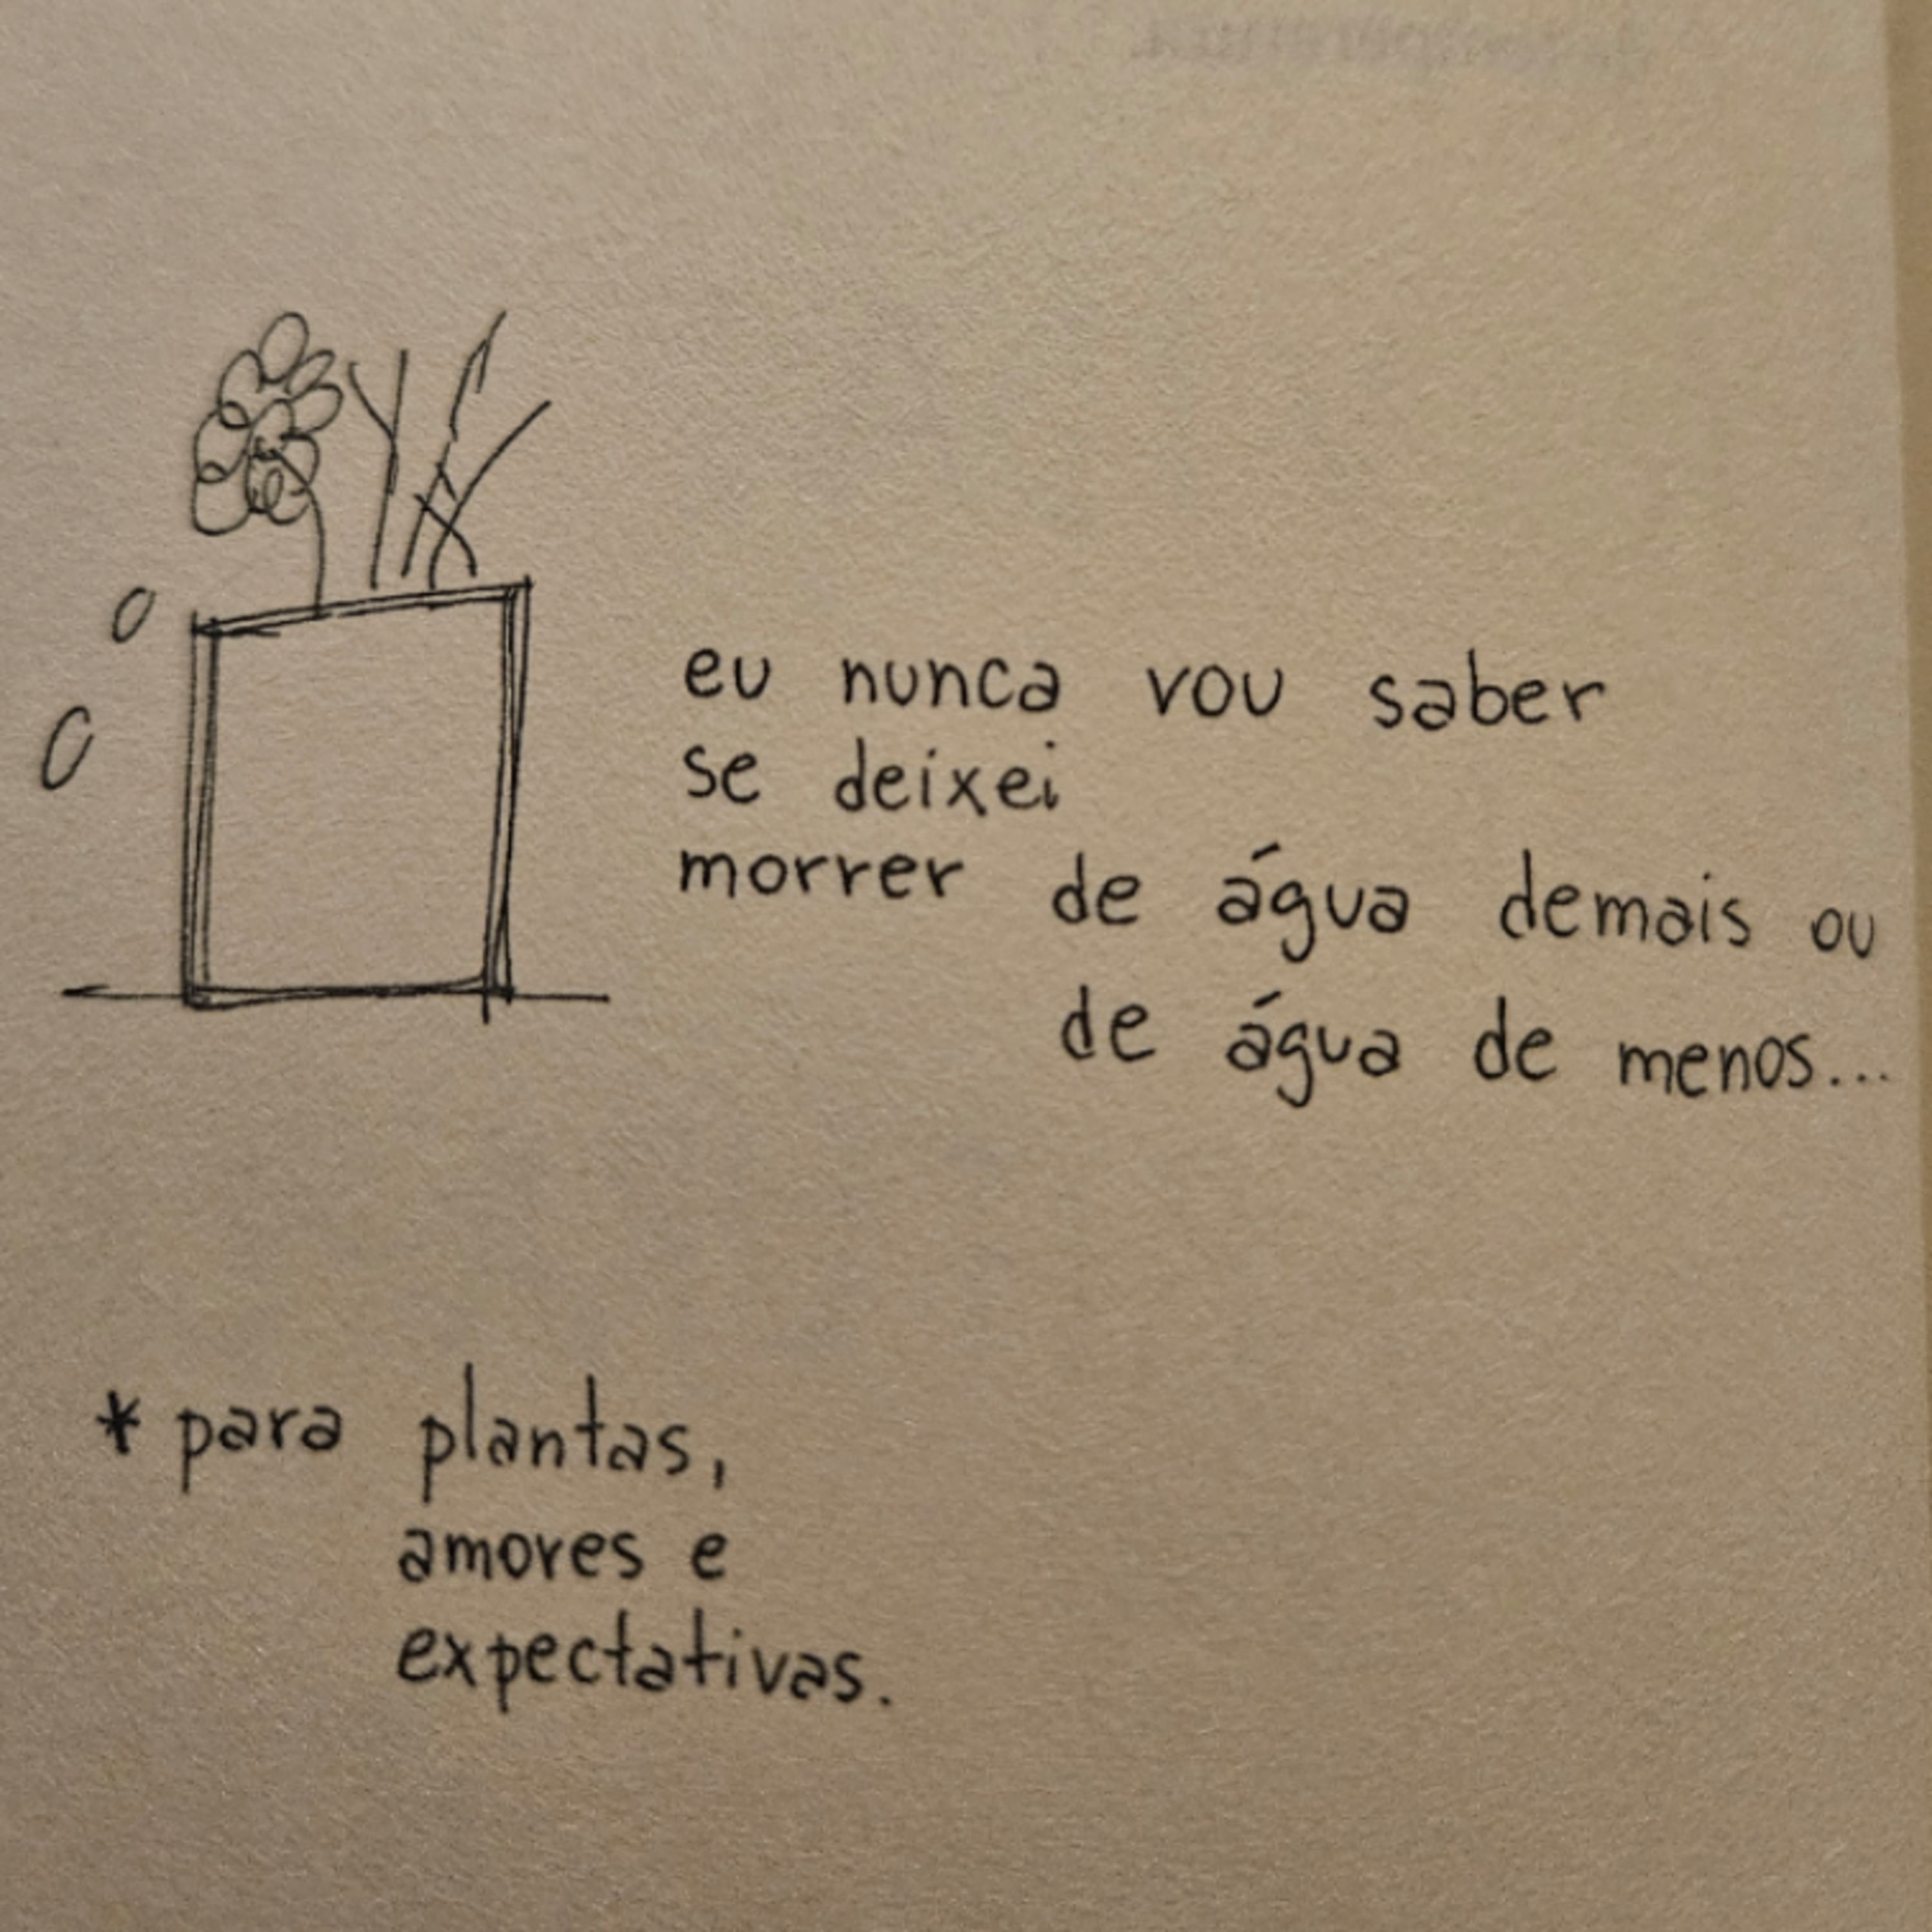 eu nunca vou saber
se deixei
morrer de água demais ou
de água de menos...
* para plantas,
amores e
expectativas.